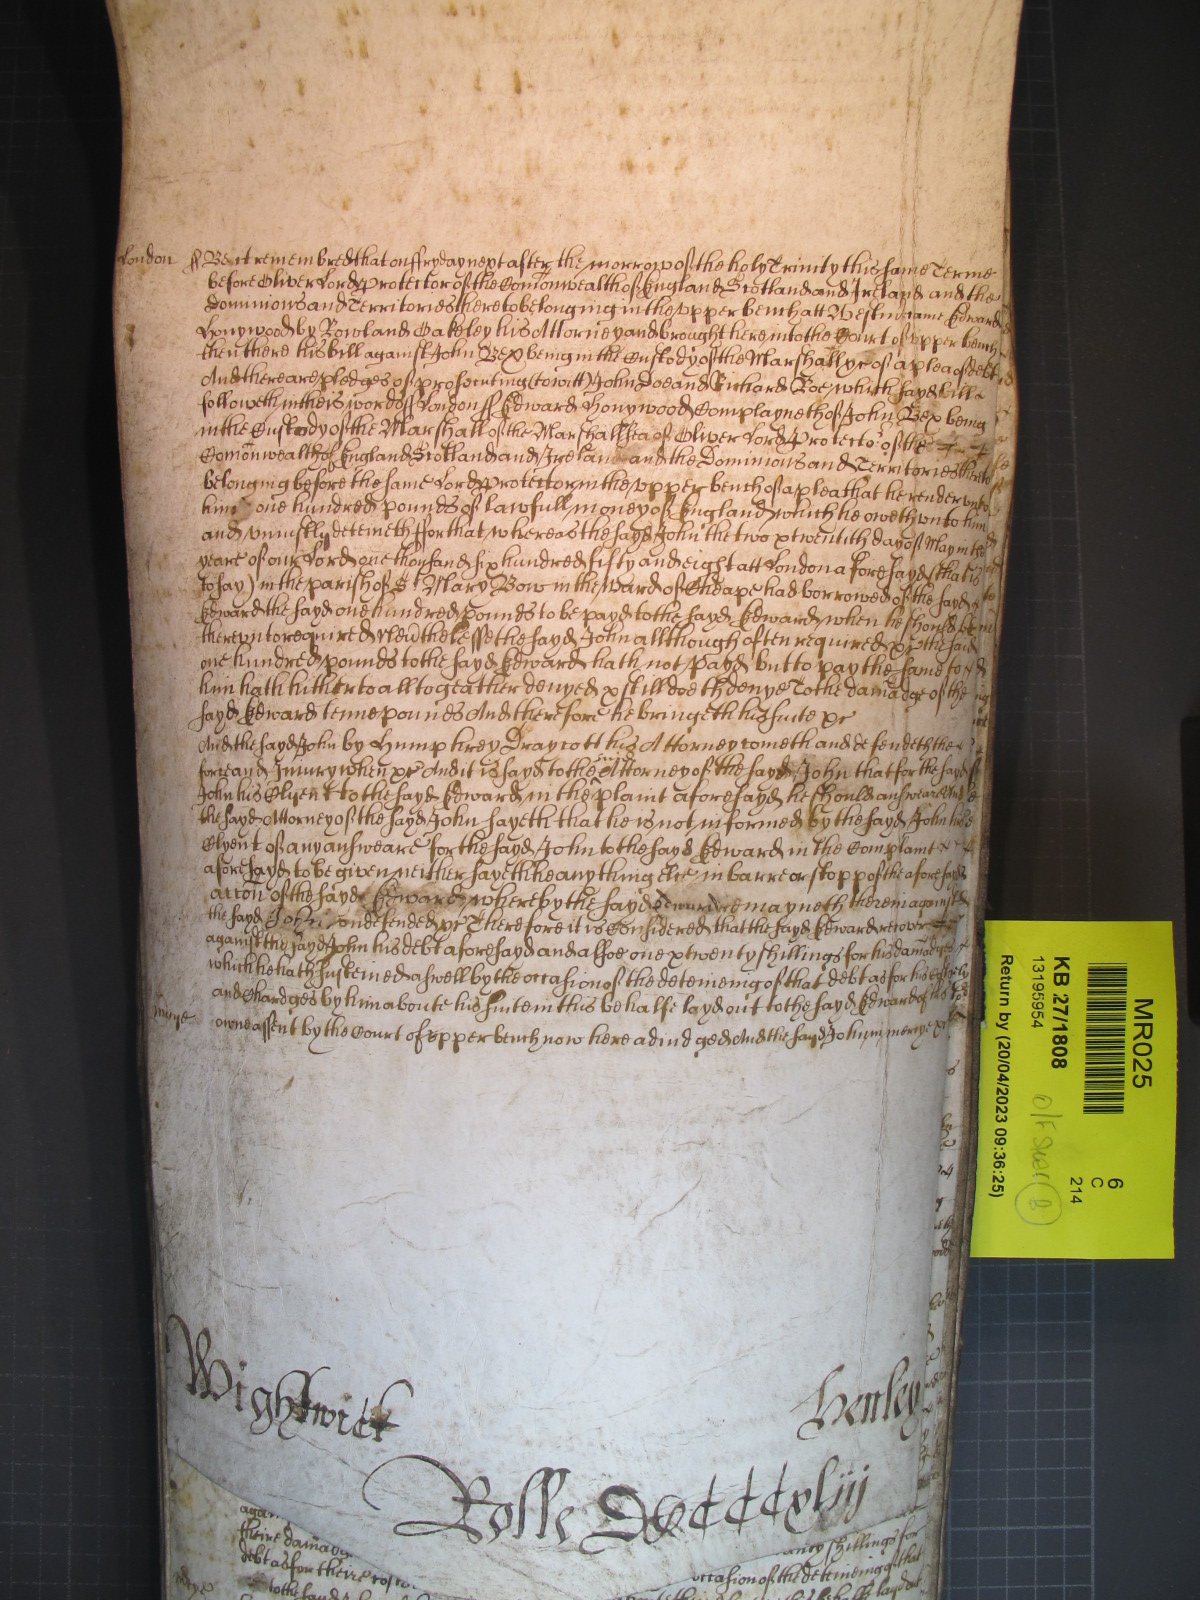 London ss Be it remembred that on ffryday next after the morrow of the holy Trinity this same Terme
before Oliver Lord Protector of the Comonwealth of England Scotland and Ireland and the
Dominions and Territories thereto belonging in the upper bench att Westm came Edward
Honywood by Rowland Oakeley his Attorney and brought here into the Court of upper bench
then there his bill against John Bex being in the Custody of the Marshall &c of a plea of debt
And there are pledges of prosecuting (to witt) John Doe and Richard Roe, which sayd bill
followeth in theis words ss London ss Edward Honywood Complayneth of John Bex being
in the Custody of the Marshall of the Marshallsea of Oliver Lord Protector of the
Comonwealth of England Scotland and Ireland and the Dominions and Territories thereto
belonging before the same Lord Protector in the upper bench of a plea that he render unto
him one hundred pounds of lawfull money of England which he oweth unto him
and uniustly deteineth ffor that whereas the sayd John the two & twentith day of May in the
yeare of our Lord one thousand six hundred fifty and eight att London aforesayd (that is
to say) in the parish of St Mary Bow in the Ward of Cheape had borrowed of the sayd
Edward the sayd one hundred pounds to be payd to the sayd Edward when he should be
thereunto required Neuthelesse the sayd John allthough often required &c the said
one hundred pounds to the sayd Edward hath not payd but to pay the same to
him hath hitherto alltogeather denyed & still doeth denye To the damadge of the
sayd Edward tenne pounds And therefore he bringeth his suite &c
And the sayd John by Humphrey Draycott his Attorney cometh and defendeth the
force and Iniury when &c And it is sayd to the Attorney of the sayd John that for the sayd
John his Clyent to the sayd Edward in the plaint aforesayd he should answeare And
the sayd Attorney of the sayd John sayeth that he is not informed by the sayd John his
Clyent of any answeare for the sayd John to the sayd Edward in the Complaint
aforesayd to be given neither sayeth he any thing else in barre or stopp of the aforesayd
accon of the sayd Edward whereby the sayd Edward remayneth therein against
the sayd John undefended &c Therefore it is Considered that the sayd Edward recover
against the sayd John his debt aforesayd and alsoe one & twenty shillings for his damadges
which he hath susteined aswell by the occasion of the deteineing of that debt as for his costs
and Chardges by him aboute his suite in this behalfe layd out to the sayd Edward of his
mercye owne assent by the Court of upper bench now here adiudged And the sayd John in mercye &c
Wightwick
Henley
Rolle DCCCCxliij
again
theire damadg
debt as for theire costs
to the sayd
twenty shillings for
occasion of the deteineing of that
behalfe layd out
MR025
KB 27/1808
13195954
Return by (20/04/2023 09:36:25)
6
C
214